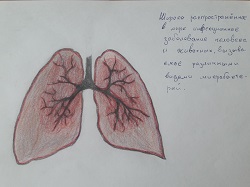 Широко распространённое
в мире инфекционное
заболевание человека
и животных, вызыва
емое различными
видами микобакте-
рий.